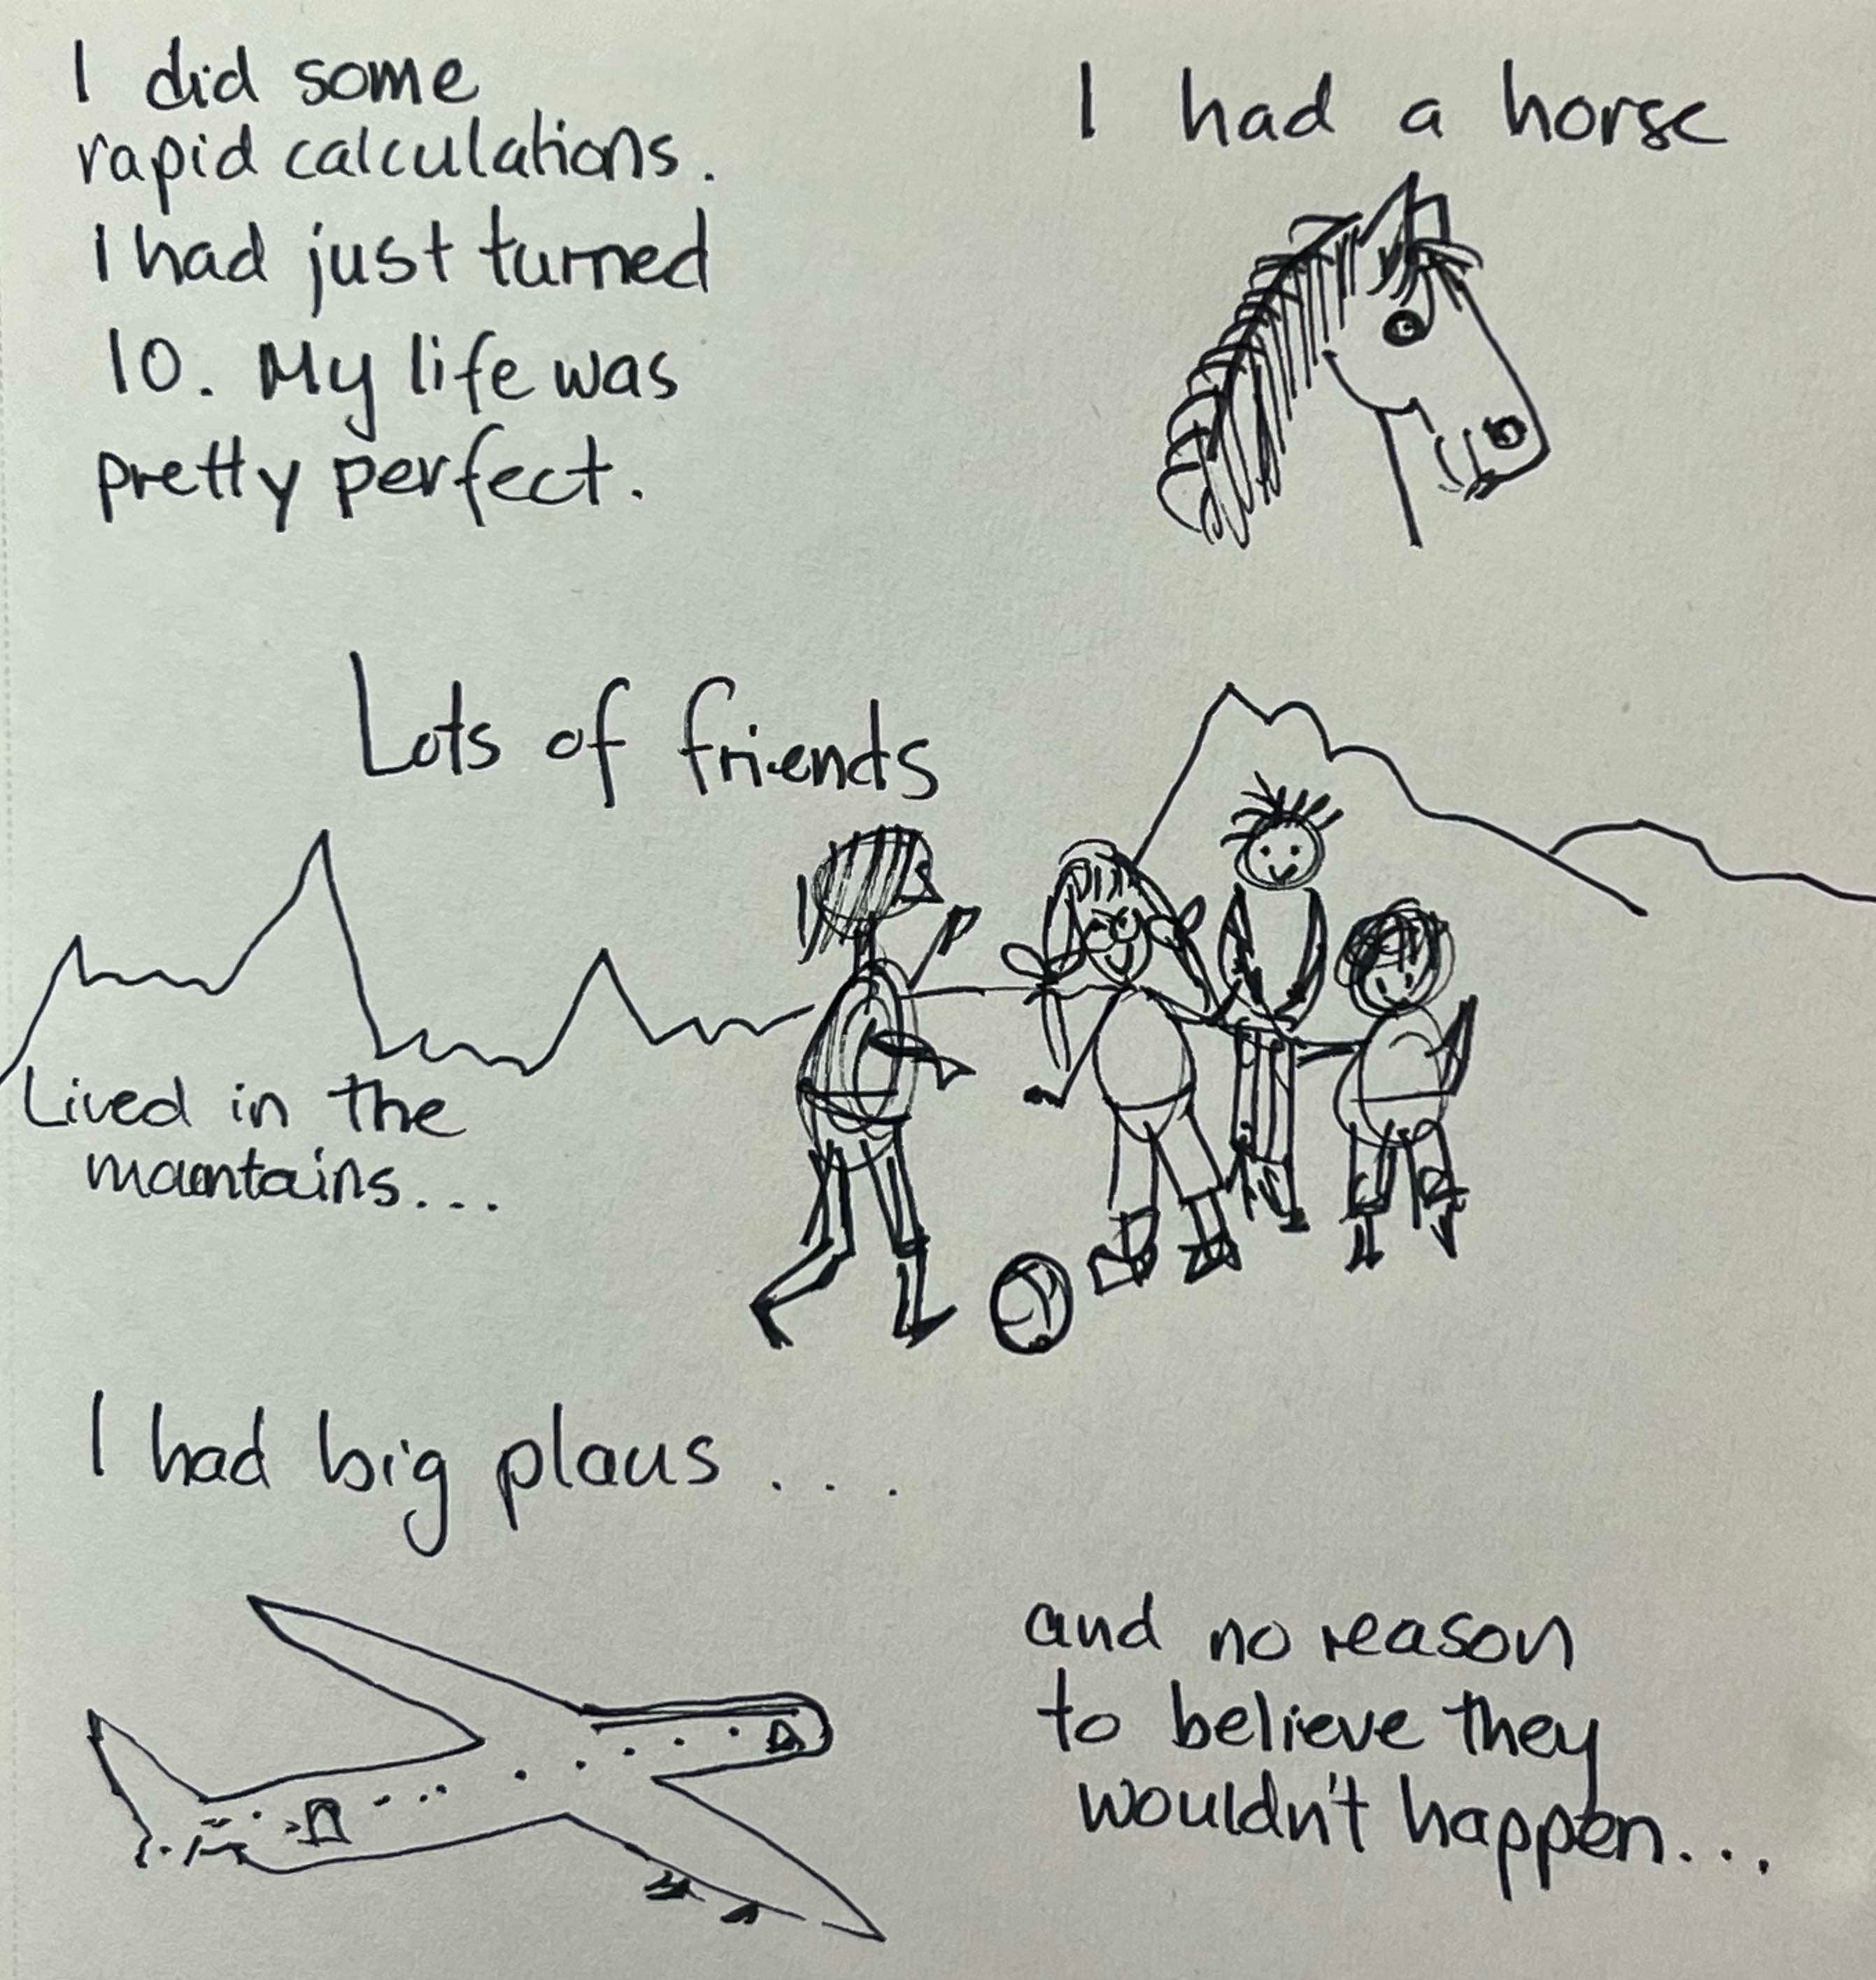 I did some
rapid calculations.
I had just turned
10. My life was
pretty perfect.
I had a horse
Lots of friends
Lived in the
mountains...
I had big plans...
and no reason
to believe they
wouldn't happen...